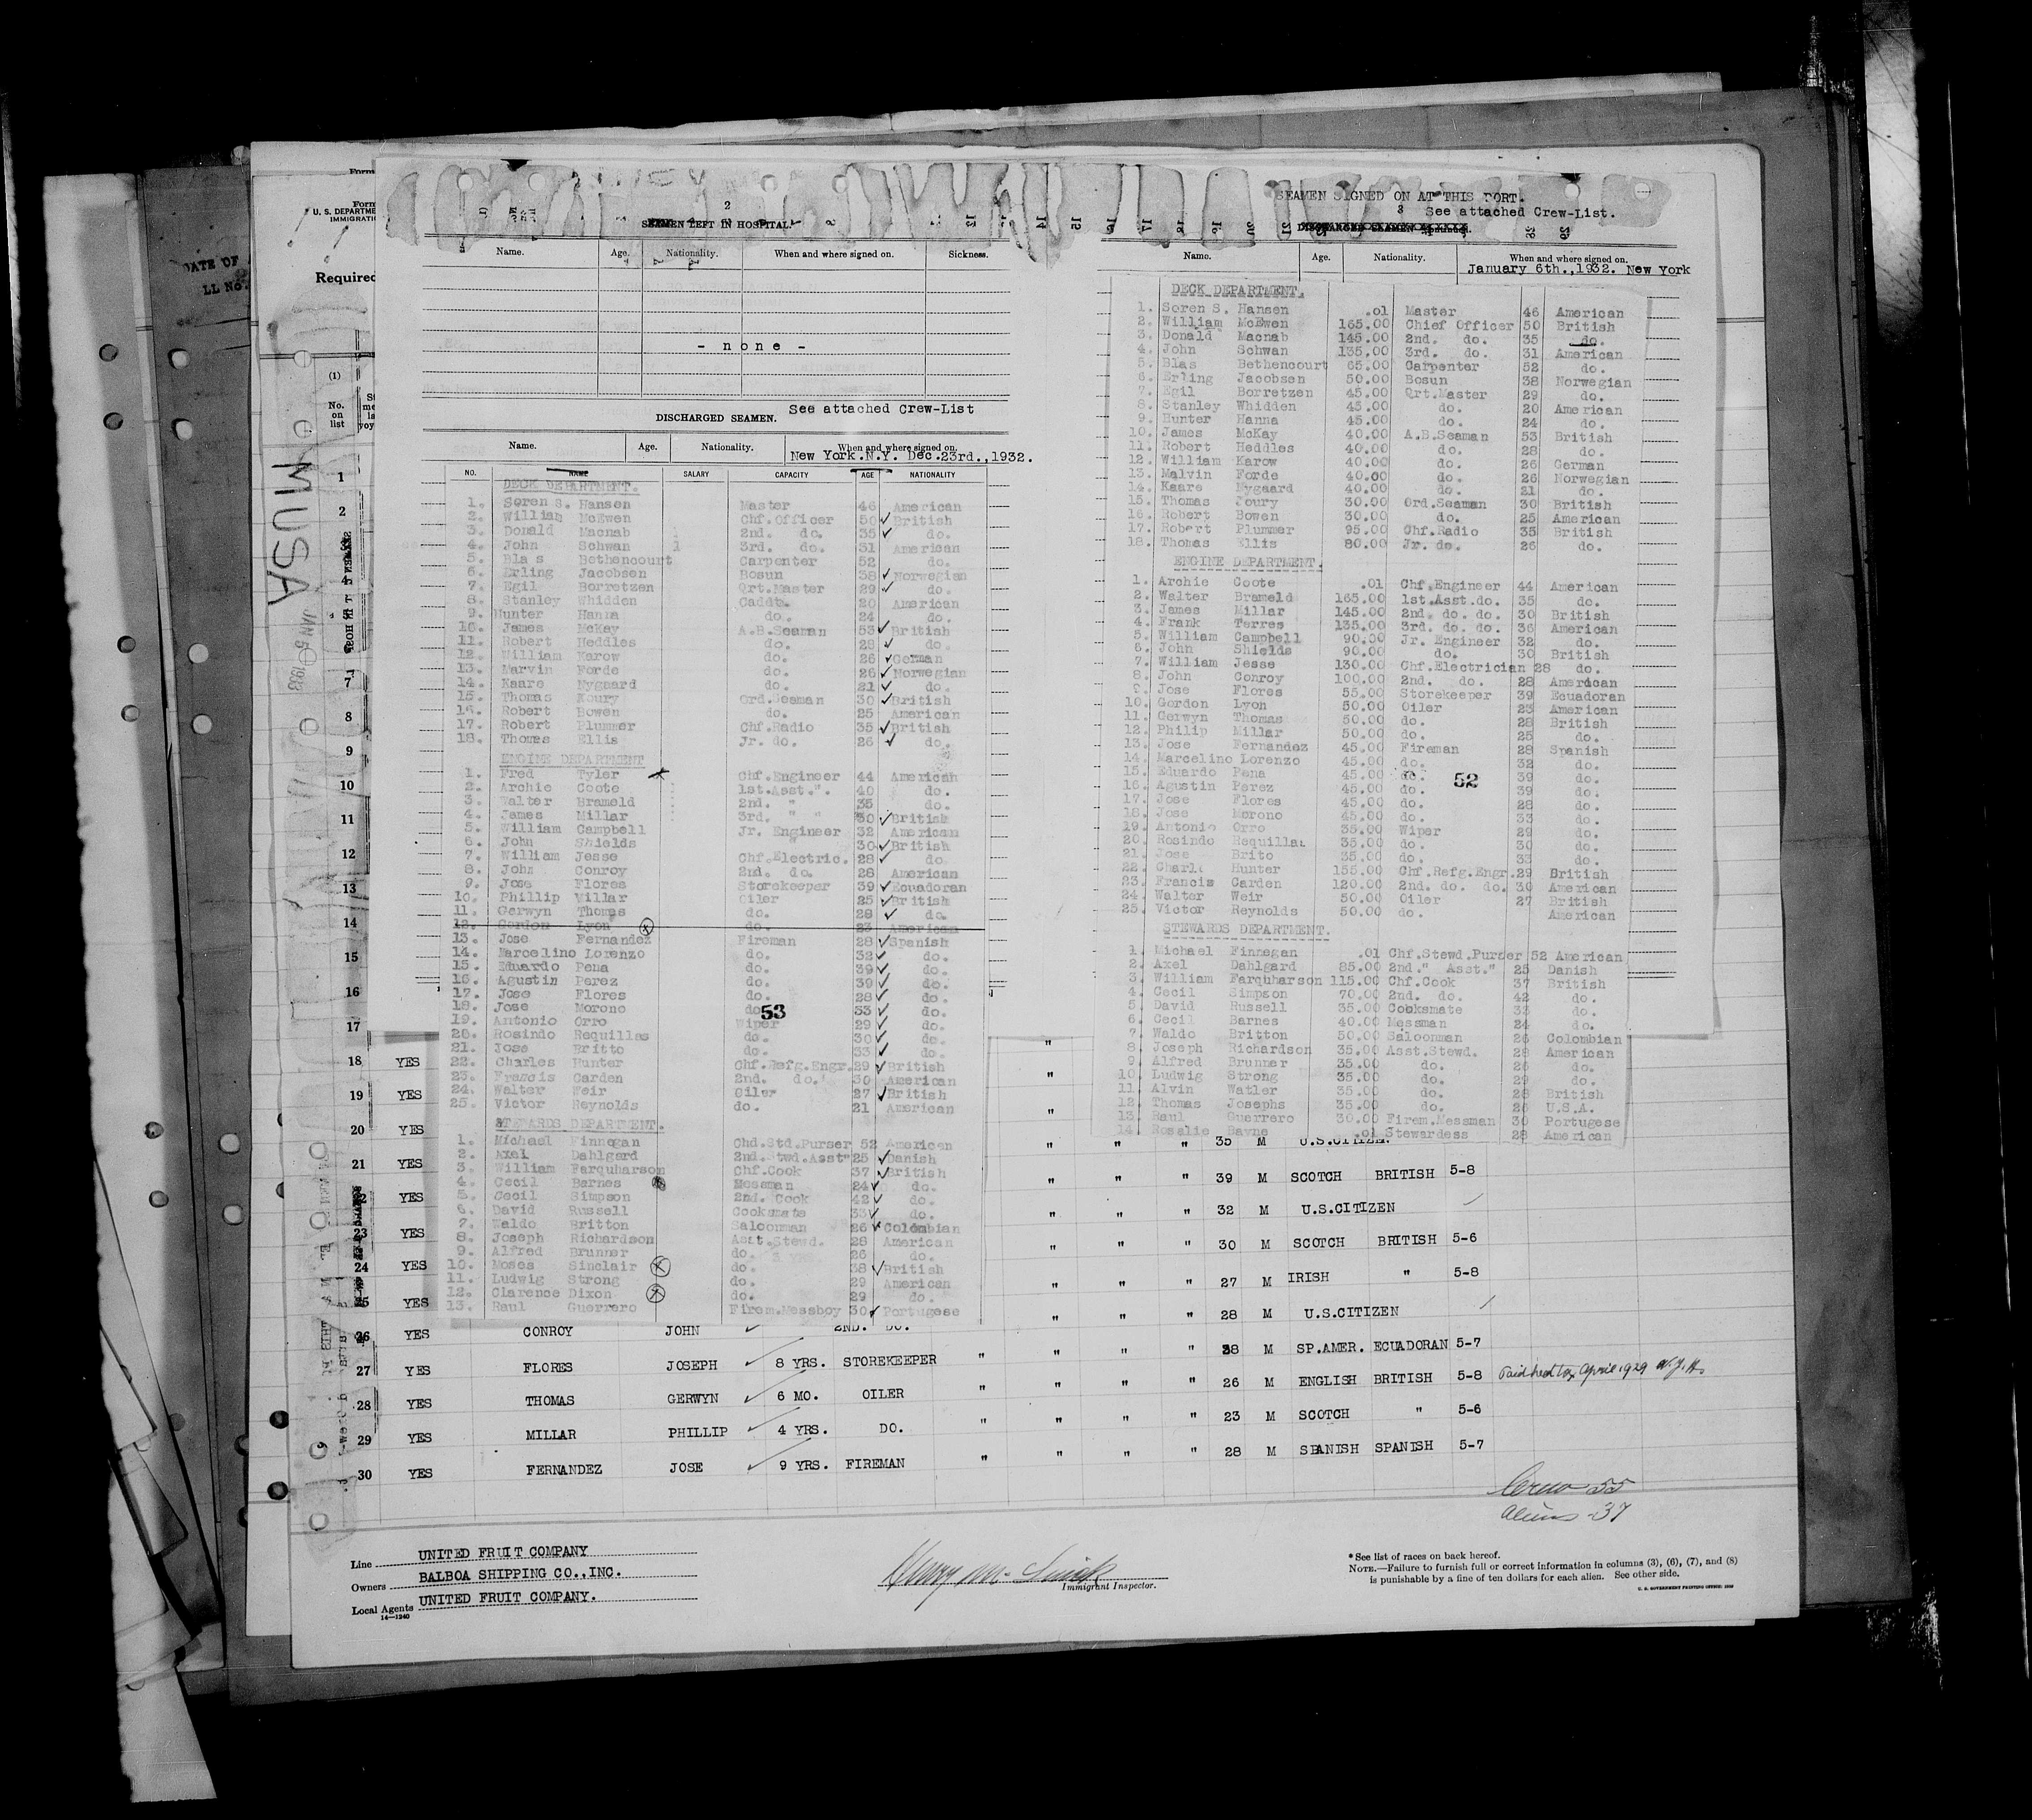 Form
Form
U. S. DEPARTME
IMMIGRATI
DATE OF
LL No.
Required
(1)
No.
on
list
MUSA
JAN 5 1933
2
SEAMEN LEFT IN HOSPITAL.
Name. Age. Nationality. When and where signed on. Sickness.
- none -
DISCHARGED SEAMEN. See attached Crew-List
Name. Age. Nationality. When and where signed on.
New York.N.Y. Dec.23rd.,1932.
NO. NAME SALARY CAPACITY AGE NATIONALITY
DECK DEPARTMENT.
1. Soren S. Hansen Master 46 American
2. William McEwen Chf.Officer 50 ✓ British
3. Donald Macnab 2nd. do. 35 ✓ do.
4. John Schwan 3rd. do. 31 American
5. Blas Bethencourt Carpenter 52 do.
6. Erling Jacobsen Bosun 38 ✓ Norwegian
7. Egil Borretzen Qrt.Master 29 ✓ do.
8. Stanley Whidden Caddt. 20 American
9. Hunter Hanna do. 24 do.
10. James McKay A.B.Seaman 53 ✓ British
11. Robert Heddles do. 28 ✓ do.
12. William Karow do. 26 ✓ German
13. Marvin Forde do. 26 ✓ Norwegian
14. Kaare Nygaard do. 21 ✓ do.
15. Thomas Koury Ord.Seaman 30 ✓ British
16. Robert Bowen do. 25 American
17. Robert Plummer Chf.Radio 35 ✓ British
18. Thomas Ellis Jr. do. 26 ✓ do.
ENGINE DEPARTMENT
1. Fred Tyler x Chf.Engineer 44 American
2. Archie Coote 1st.Asst.". 40 do.
3. Walter Brameld 2nd. " 35 do.
4. James Millar 3rd. " " 30 ✓ British
5. William Campbell Jr. Engineer 32 American
6. John Shields " 30 ✓ British
7. William Jesse Chf.Electric. 28 ✓ do
8. John Conroy 2nd. do. 28 American
9. Jose Flores Storekeeper 39 ✓ Ecuadoran
10. Phillip Millar Oiler 25 ✓ British
11. Gerwyn Thomas do. 28 ✓ do.
12. Gordon Lyon x do. 23 American
13. Jose Fernandez Fireman 28 ✓ Spanish
14. Marcelino Lorenzo do. 32 ✓ do.
15. Eduardo Pena do. 39 ✓ do.
16. Agustin Perez do. 39 ✓ do.
17. Jose Flores do. 28 ✓ do.
18. Jose Morono do. 33 ✓ do.
53
19. Antonio Orro Wiper 29 ✓ do.
20. Rosindo Requillas do. 30 ✓ do.
21. Jose Britto do. 33 ✓ do.
22. Charles Hunter Chf.Refg.Engr. 29 ✓ British
23. Francis Carden 2nd. do. 30 American
24. Walter Weir Oiler 27 ✓ British
25. Victor Reynolds do. 21 American
STEWARDS DEPARTMENT.
1. Michael Finnegan Chd.Std.Purser 52 American
2. Axel Dahlgard 2nd.Stwd.Asst" 25 ✓ Danish
3. William Farquharson Chf.Cook 37 ✓ British
4. Cecil Barnes Messman 24 ✓ do.
5. Cecil Simpson 2nd. Cook 42 ✓ do.
6. David Russell Cooksmate 33 ✓ do.
7. Waldo Britton Saloonman 26 ✓ Colombian
8. Joseph Richardson Asst.Stewd. 28 American
9. Alfred Brunner do. 26 do.
10. Moses Sinclair x do. 38 ✓ British
11. Ludwig Strong do. 29 American
12. Clarence Dixon x do. 29 do.
13. Raul Guerrero Firem.Messboy 30 ✓ Portugese
SEAMEN SIGNED ON AT THIS PORT.
3 See attached Crew-List.
Name. Age. Nationality. When and where signed on.
January 6th.,1932. New York
DECK DEPARTMENT.
1. Soren S. Hansen .01 Master 46 American
2. William McEwen 165.00 Chief Officer 50 British
3. Donald Macnab 145.00 2nd. do. 35 do.
4. John Schwan 135.00 3rd. do. 31 American
5. Blas Bethencourt 65.00 Carpenter 52 do.
6. Erling Jacobsen 50.00 Bosun 38 Norwegian
7. Egil Borretzen 45.00 Qrt.Master 29 do.
8. Stanley Whidden 45.00 do. 20 American
9. Hunter Hanna 45.00 do. 24 do.
10. James McKay 40.00 A.B.Seaman 53 British
11. Robert Heddles 40.00 do. 28 do.
12. William Karow 40.00 do. 26 German
13. Malvin Forde 40.00 do. 26 Norwegian
14. Kaare Nygaard 40.00 do. 21 do.
15. Thomas Joury 30.00 Ord.Seaman 30 British
16. Robert Bowen 30.00 do. 25 American
17. Robert Plummer 95.00 Chf.Radio 35 British
18. Thomas Ellis 80.00 Jr. do. 26 do.
ENGINE DEPARTMENT.
1. Archie Coote .01 Chf.Engineer 44 American
2. Walter Brameld 165.00 1st.Asst.do. 35 do.
3. James Millar 145.00 2nd. do. do. 30 British
4. Frank Terres 135.00 3rd. do. do. 36 American
5. William Campbell 90.00 Jr. Engineer 32 do.
6. John Shields 90.00 do. 30 British
7. William Jesse 130.00 Chf.Electrician 28 do.
8. John Conroy 100.00 2nd. do. 28 American
9. Jose Flores 55.00 Storekeeper 39 Ecuadoran
10. Gordon Lyon 50.00 Oiler 23 American
11. Gerwyn Thomas 50.00 do. 28 British
12. Philip Millar 50.00 do. 25 do.
13. Jose Fernandez 45.00 Fireman 28 Spanish
14. Marcelino Lorenzo 45.00 do. 32 do.
15. Eduardo Pena 45.00 do. 39 do.
52
16. Agustin Perez 45.00 do. 39 do.
17. Jose Flores 45.00 do. 28 do.
18. Jose Morono 45.00 do. 33 do.
19. Antonio Orro 35.00 Wiper 29 do.
20. Rosindo Requillas 35.00 do. 30 do.
21. Jose Brito 35.00 do. 33 do.
22. Charl Hunter 155.00 Chf.Refg.Engr. 29 British
23. Francis Carden 120.00 2nd. do. do. 30 American
24. Walter Weir 50.00 Oiler 27 British
25. Victor Reynolds 50.00 do. American
STEWARDS DEPARTMENT.
1. Michael Finnegan .01 Chf.Stewd.Purser 52 American
2. Axel Dahlgard 85.00 2nd." Asst." 25 Danish
3. William Farquharson 115.00 Chf.Cook 37 British
4. Cecil Simpson 70.00 2nd. do. 42 do.
5. David Russell 35.00 Cooksmate 33 do.
6. Cecil Barnes 40.00 Messman 24 do.
7. Waldo Britton 50.00 Saloonman 26 Colombian
8. Joseph Richardson 35.00 Asst.Stewd. 28 American
9. Alfred Brunner 35.00 do. 26 do.
10. Ludwig Strong 35.00 do. 29 do.
11. Alvin Watler 35.00 do. 28 British
12. Thomas Josephs 35.00 do. 26 U.S.A.
13. Raul Guerrero 30.00 Firem.Messman 30 Portugese
14. Rosalie Bayne .01 Stewardess 28 American
1
2
7
8
9
10
11
12
13
14
15
16
17
18 YES "
19 YES "
20 YES "
21 YES " " " 35 M U.S.CITIZEN
22 YES " " " 39 M SCOTCH BRITISH 5-8
23 YES " " " 32 M U.S.CITIZEN
24 YES " " " 30 M SCOTCH BRITISH 5-6
25 YES " " " 27 M IRISH " 5-8
26 YES CONROY JOHN ✓ 2ND. DO. " " " 28 M U.S.CITIZEN
27 YES FLORES JOSEPH ✓ 8 YRS. STOREKEEPER " " " " 38 M SP.AMER. ECUADORAN 5-7
28 YES THOMAS GERWYN ✓ 6 MO. OILER " " " " 26 M ENGLISH BRITISH 5-8 Paid head tax April 1929 W.J.H.
29 YES MILLAR PHILLIP ✓ 4 YRS. DO. " " " " 23 M SCOTCH " 5-6
30 YES FERNANDEZ JOSE ✓ 9 YRS. FIREMAN " " " " 28 M SPANISH SPANISH 5-7
Crew 55
aliens -37
Line UNITED FRUIT COMPANY
Owners BALBOA SHIPPING CO.,INC.
Local Agents UNITED FRUIT COMPANY.
14—1240
Immigrant Inspector.
* See list of races on back hereof.
NOTE.—Failure to furnish full or correct information in columns (3), (6), (7), and (8)
is punishable by a fine of ten dollars for each alien. See other side.